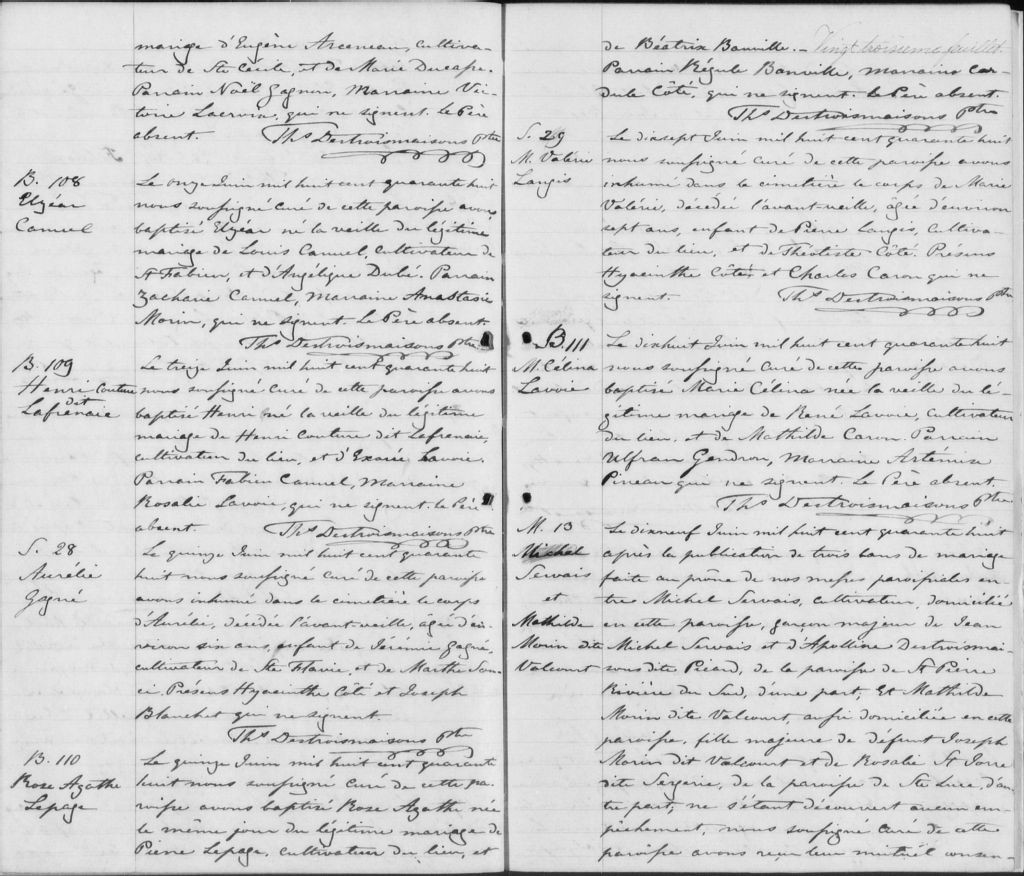 mariage d'Eugène Arceneau, cultiva-
teur de Ste Cécile, et de Marie Ducape.
Parrain Noël Gagnon, Marraine Vic-
toire Lacroix, qui ne signent. le Père
absent. Ths Destroismaisons Ptre
B. 108
Elzéar
Canuel
Le onze Juin mil huit cent quarante huit
nous soussigné Curé de cette paroisse avons
baptisé Elzéar né la veille du légitime
mariage de Louis Canuel, cultivateur de
St Fabien, et d'Angélique Dubé. Parrain
Zacharie Canuel, Marraine Anastasie
Morin, qui ne signent. Le Père absent.
Ths Destroismaisons Ptre
B. 109
Henri Couture
dit
Lafrenaie
Le treize Juin mil huit cent quarante huit
nous soussigné curé de cette paroisse avons
baptisé Henri né la veille du légitime
mariage de Henri Couture dit Lafrenaie,
cultivateur du lieu, et d'Exorée Lavoie.
Parrain Fabien Canuel, Marraine
Rosalie Lavoie, qui ne signent. le Père
absent. Ths Destroismaisons Ptre
S. 28
Aurélie
Gagné
Le quinze Juin mil huit cent quarante
huit nous soussigné curé de cette paroisse
avons inhumé dans le cimetière le corps
d'Aurélie, décédée l'avant-veille, agée d'en-
viron six ans, enfant de Jérémie Gagné,
cultivateur de Ste Flavie, et de Marthe Sou-
ci. Présens Hyacinthe Côté et Joseph
Blanchet qui ne signent.
Ths Destroismaisons Ptre
B. 110
Rose Agathe
Lepage
Le quinze Juin mil huit cent quarante
huit nous soussigné Curé de cette pa-
roisse avons baptisé Rose Agathe née
le même jour du légitime mariage de
Pierre Lepage, cultivateur du lieu, et
de Béatrix Banville. — Vingt troisieme feuillet.
Parrain Régule Banville, marraine Cor-
dule Côté, qui ne signent. Le Père absent.
Ths Destroismaisons Ptre
S. 29
M. Valérie
Langis
Le dixsept Juin mil huit cent quarante huit
nous soussigné curé de cette paroisse avons
inhumé dans le cimetière le corps de Marie
Valérie, décédée l'avant-veille, âgée d'environ
sept ans, enfant de Pierre Langis, cultiva-
teur du lieu, et de Théotiste Côté. Présens
Hyacinthe Côté et Charles Caron qui ne
signent. Ths Destroismaisons Ptre
B. 111
M. Célina
Lavoie
Le dixhuit Juin mil huit cent quarante huit
nous soussigné Curé de cette paroisse avons
baptisé Marie Célina née la veille du lé-
gitime mariage de René Lavoie, cultivateur
du lieu, et de Mathilde Caron. Parrain
Ulfran Gendron, Marraine Artémise
Pineau qui ne signent. Le Père absent.
Ths Destroismaisons Ptre
M. 13
Michel
Servais
et
Mathilde
Morin dite
Valcourt
Le dixneuf Juin mil huit cent quarante huit
après la publication de trois bans de mariage
faite au prône de nos messes paroissiales en-
tre Michel Servais, cultivateur, domicilié
en cette paroisse, garçon majeur de Jean
Michel Servais et d'Apolline Destroismai-
sons dite Picard, de la paroisse de St Pierre
Rivière du Sud, d'une part; Et Mathilde
Morin dite Valcourt, aussi domiciliée en cette
paroisse, fille majeure de défunt Joseph
Morin dit Valcourt et de Rosalie St Jorre
dite Sergerie, de la paroisse de Ste Luce, d'au-
tre part; ne s'étant découvert aucun em-
pêchement, nous soussigné curé de cette
paroisse avons reçu leur mutuel consen-